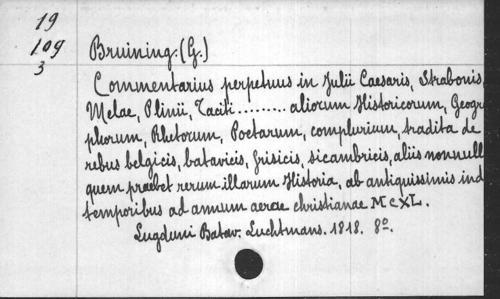 19
109
3
Bruining. (G.)
Commentarius perpetuus in Julii Caesaris, Strabonis,
Melae, Plinii, Taciti......... aliorum Historicorum, Geogr
phorum, Rhetorum, Poetarum, complurium, tradita de
rebus belgicis, batavicis, frisicis, sicambricis, aliis nonnull
quem praebet rerum illarum Historia, ab antiquissimis ind
temporibus ad annum aerae christianae MCXL.
Lugduni Batav. Luchtmans. 1818. 8o.